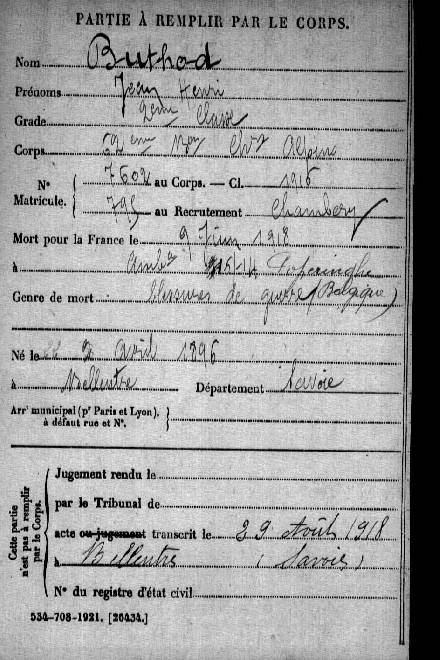 PARTIE À REMPLIR PAR LE CORPS.
Nom Buthod
Prénoms Jean Henri
Grade 2eme Classe
Corps eme Alpins
N° Matricule. 7602 au Corps. — Cl. 1916
795 au Recrutement Chambéry
Mort pour la France le 9 Juin 1918
à Ambce Poperinghe
Genre de mort blessures de guerre (Belgique)
Né le 2 avril 1896
à Bellentre Département Savoie
Arr' municipal (p' Paris et Lyon),
à défaut rue et N°.
Cette partie n'est pas à remplir par le Corps.
Jugement rendu le
par le Tribunal de
acte ou jugement transcrit le 29 Août 1918
à Bellentre (Savoie)
N° du registre d'état civil
534-708-1921. [26434.]